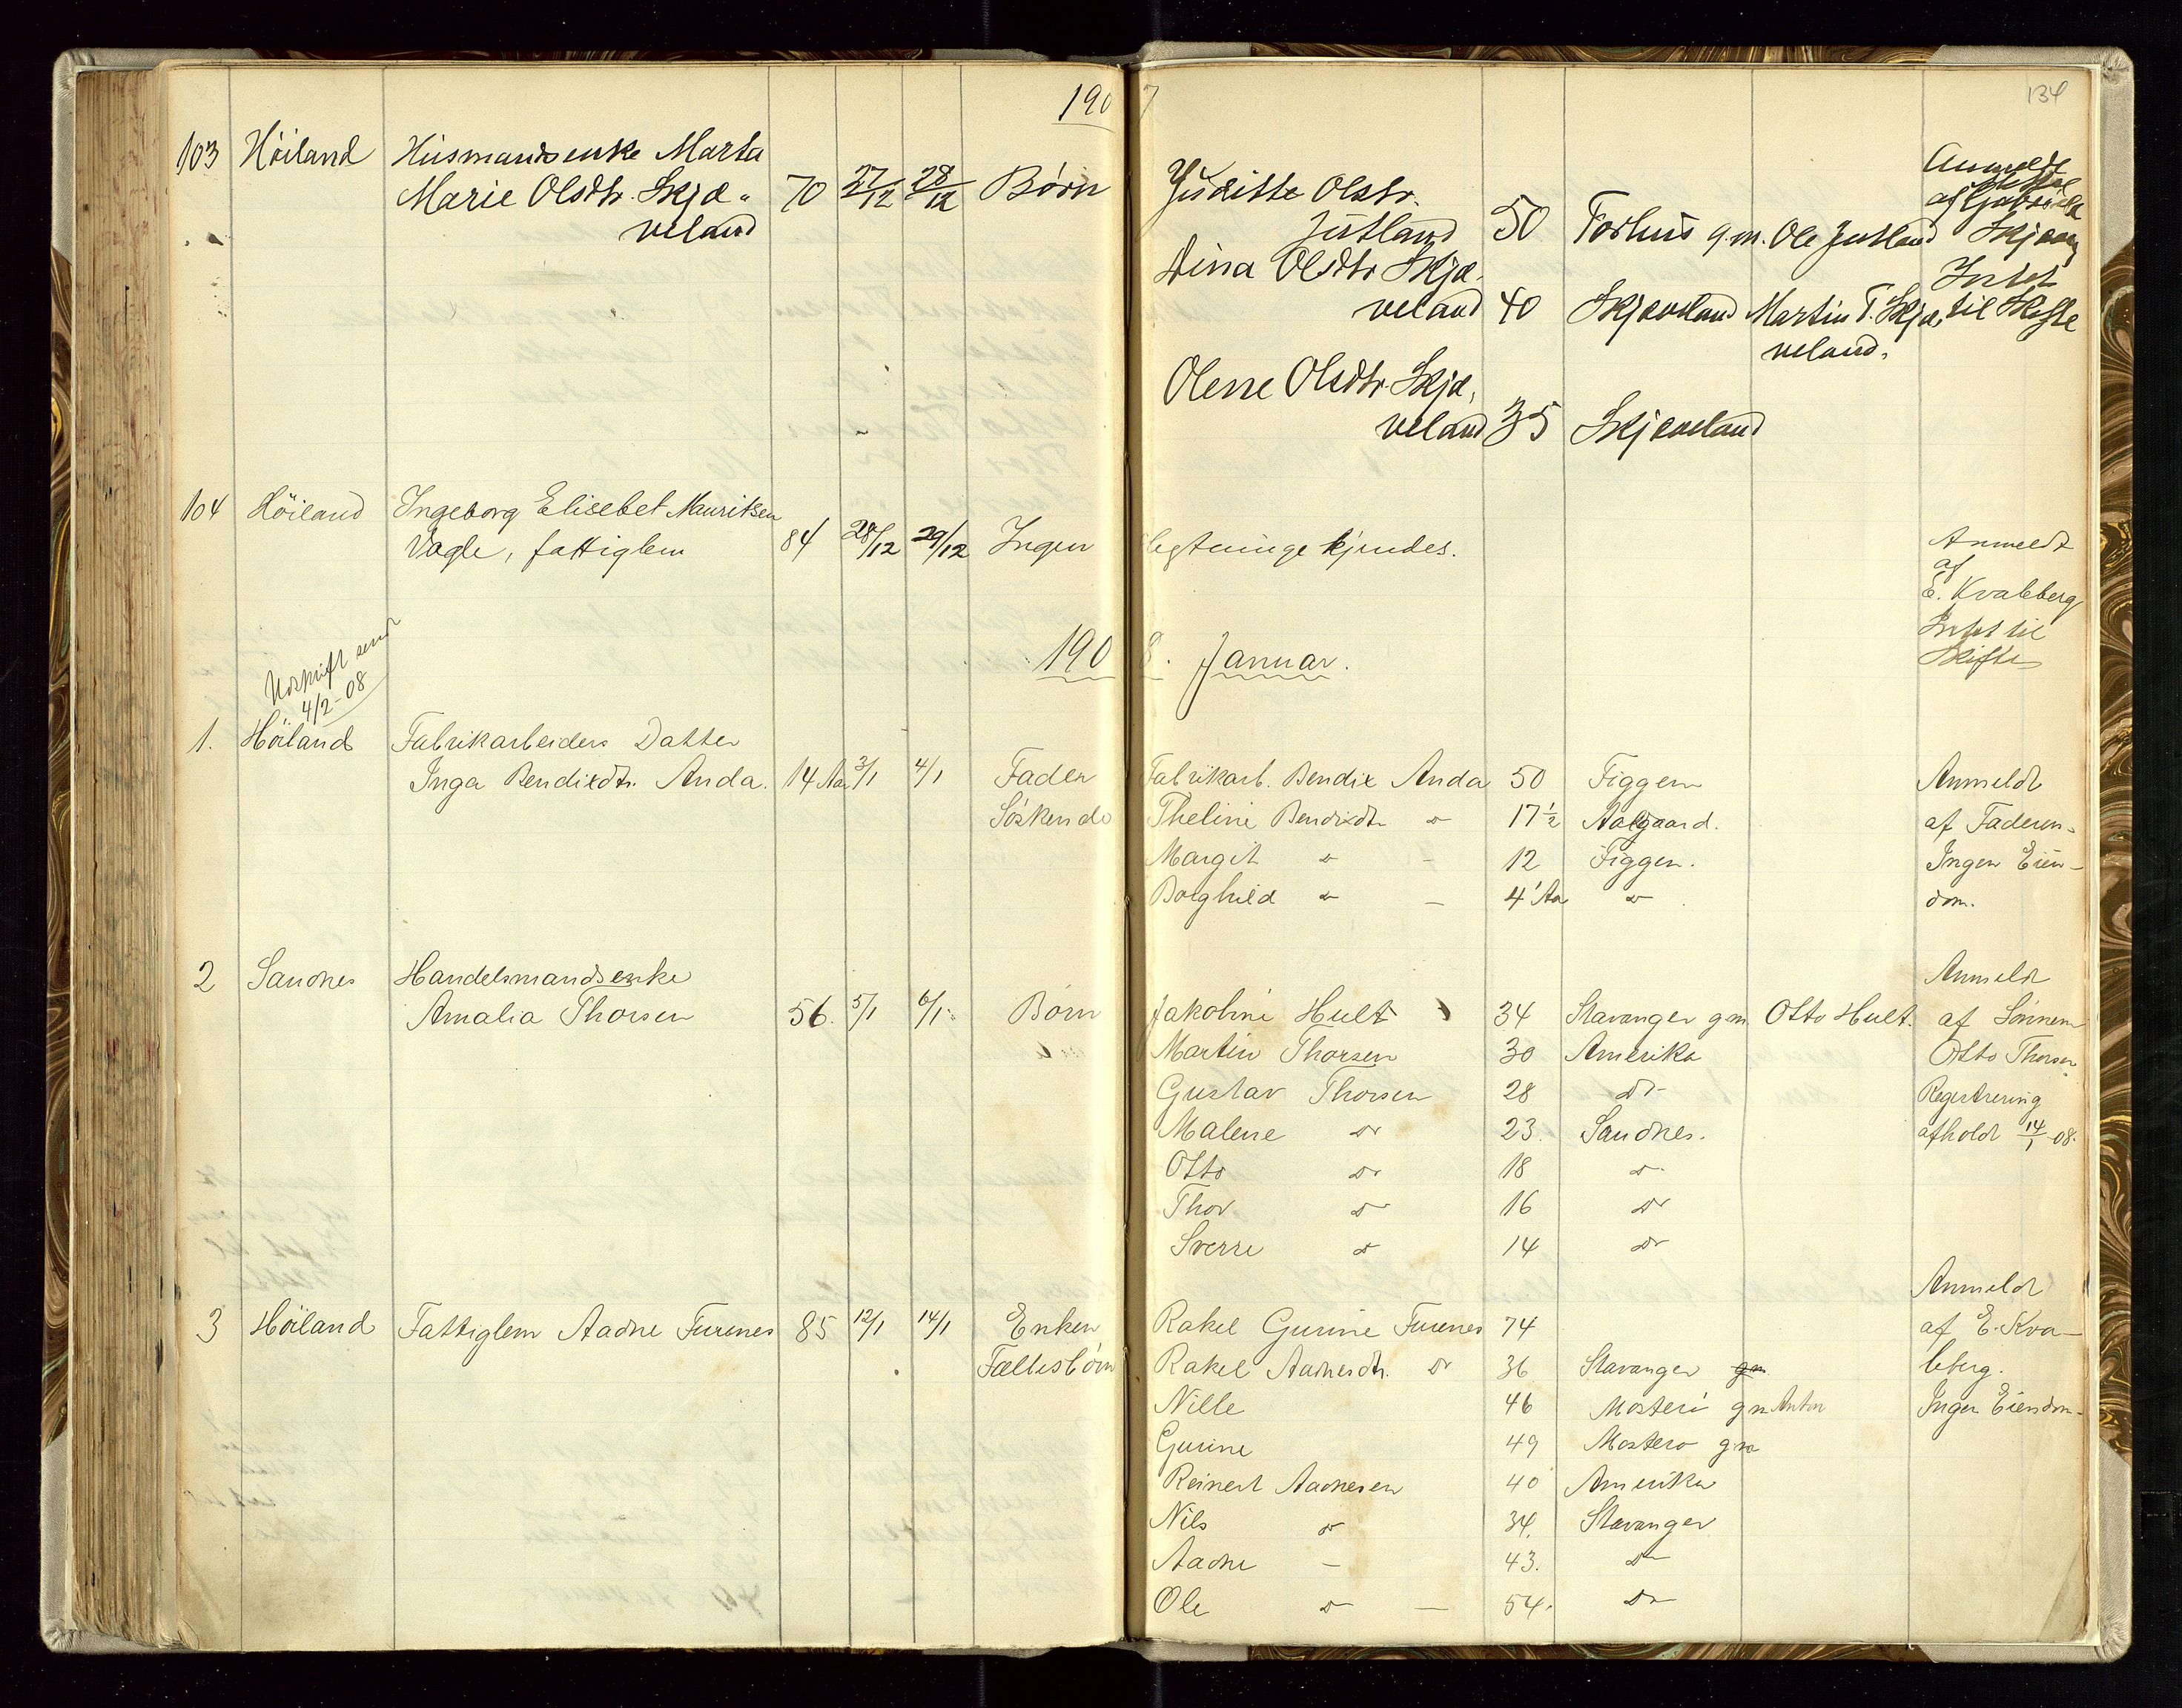 1907
134
103 Höiland Husmandsenke Marta
Marie Olsdtr. Skjæ-
veland 70 27/12 28/12 Børn
Juditte Olsdtr.
Jutland 50 Forhus g.m. Ole Jutland
Dina Olsdtr Skjæ-
veland 40 Skjæveland Martin T. Skjæ-
veland.
Olene Olsdtr. Skjæ-
veland 35 Skjæveland
Anmeldt
af
Intet
til Skifte
104 Höiland Ingeborg Elisebet Mauritsen
Vagle, fattiglem 84 28/12 29/12 Ingen slegtninge kjendes.
Anmeldt
af
E. Kvaleberg
Intet til
Skifte
1908. Januar.
Udskrift send
4/2-08
1. Höiland Fabrikarbeiders Datter
Inga Bendixdtr. Anda. 14 Aar 3/1 4/1 Fader Fabrikarb. Bendix Anda 50 Figgen
Söskende Theline Bendixdtr do 17½ Aalgaard.
Margit do - 12 Figgen.
Borghild do - 4 Aar do
Anmeldt
af Faderen.
Ingen Eien-
dom.
2 Sandnes Handelsmandsenke
Amalia Thorsen 56. 5/1 6/1 Børn Jakobine Hult 34 Stavanger gm. Otto Hult.
Martin Thorsen 30 Amerika
Gustav Thorsen 28 do
Malene do 23. Sandnes.
Otto do 18 do
Thor do 16 do
Sverre do 14 do
Anmeldt
af Sönnen
Otto Thorsen.
Registrering
afholdt 14/1-08.
3 Höiland Fattiglem Aadne Furenes 85 12/1 14/1 Enken Rakel Gurine Furenes 74
Fællesbörn Rakel Aadnesdtr. do 36 Stavanger gm
Nille 46 Mosterö gm Anton
Gurine 49 Mosterö gm
Reinert Aadnesen 40 Amerika
Nils do 34. Stavanger
Aadne - 43. do
Ole do - 54. do
Anmeldt
af E. Kva-
leberg.
Ingen Eiendom.